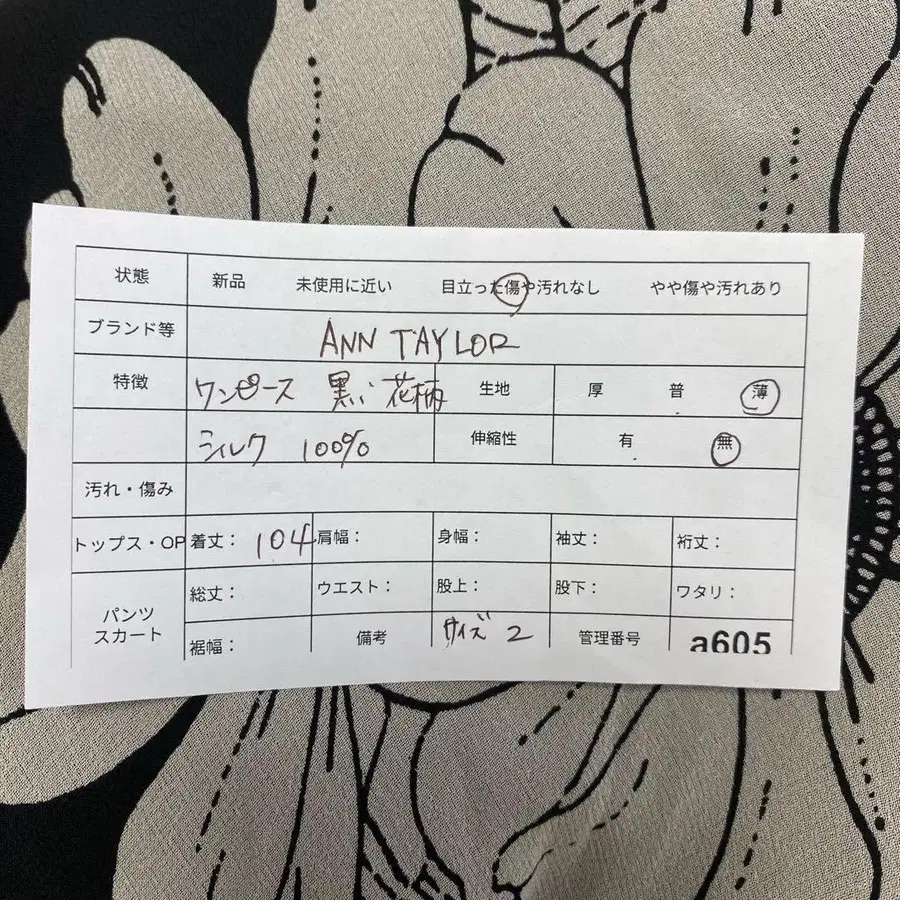 状態 新品 未使用に近い 目立った傷や汚れなし やや傷や汚れあり
ブランド等 ANN TAYLOR
特徴 ワンピース 黒い花柄 生地 厚 普 薄
シルク 100% 伸縮性 有 無
汚れ・傷み
トップス・OP 着丈: 104 肩幅: 身幅: 袖丈: 裄丈:
パンツ スカート 総丈: ウエスト: 股上: 股下: ワタリ:
裾幅: 備考 サイズ 2 管理番号 a605